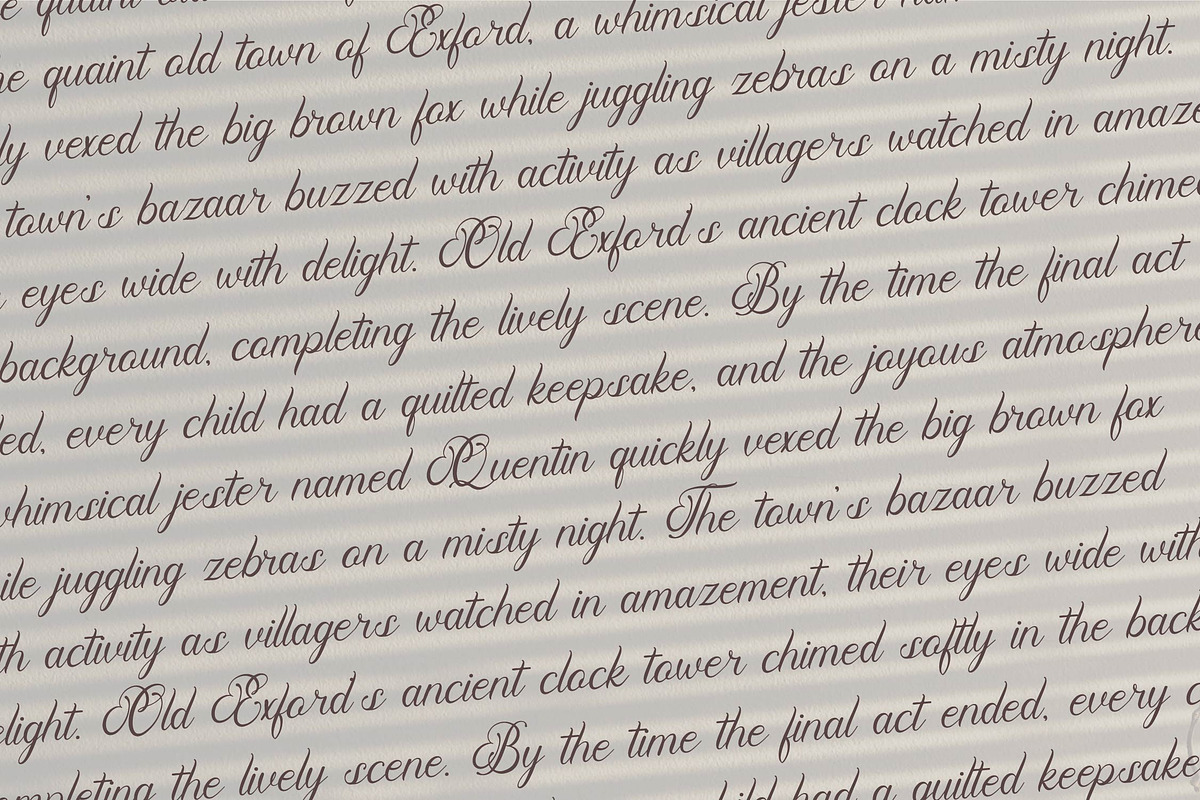 quaint old
quaint old town of Exford, a whimsical jester
vexed the big brown fox while juggling zebras on a misty night.
town's bazaar buzzed with activity as villagers watched in
eyes wide with delight. Old Exford's ancient clock tower chimed
background, completing the lively scene. By the time the final act
every child had a quilted keepsake, and the joyous atmosphere
whimsical jester named Quentin quickly vexed the big brown fox
juggling zebras on a misty night. The town's bazaar buzzed
activity as villagers watched in amazement, their eyes wide with
Old Exford's ancient clock tower chimed softly in the
the lively scene. By the time the final act ended, every
had a quilted keepsake